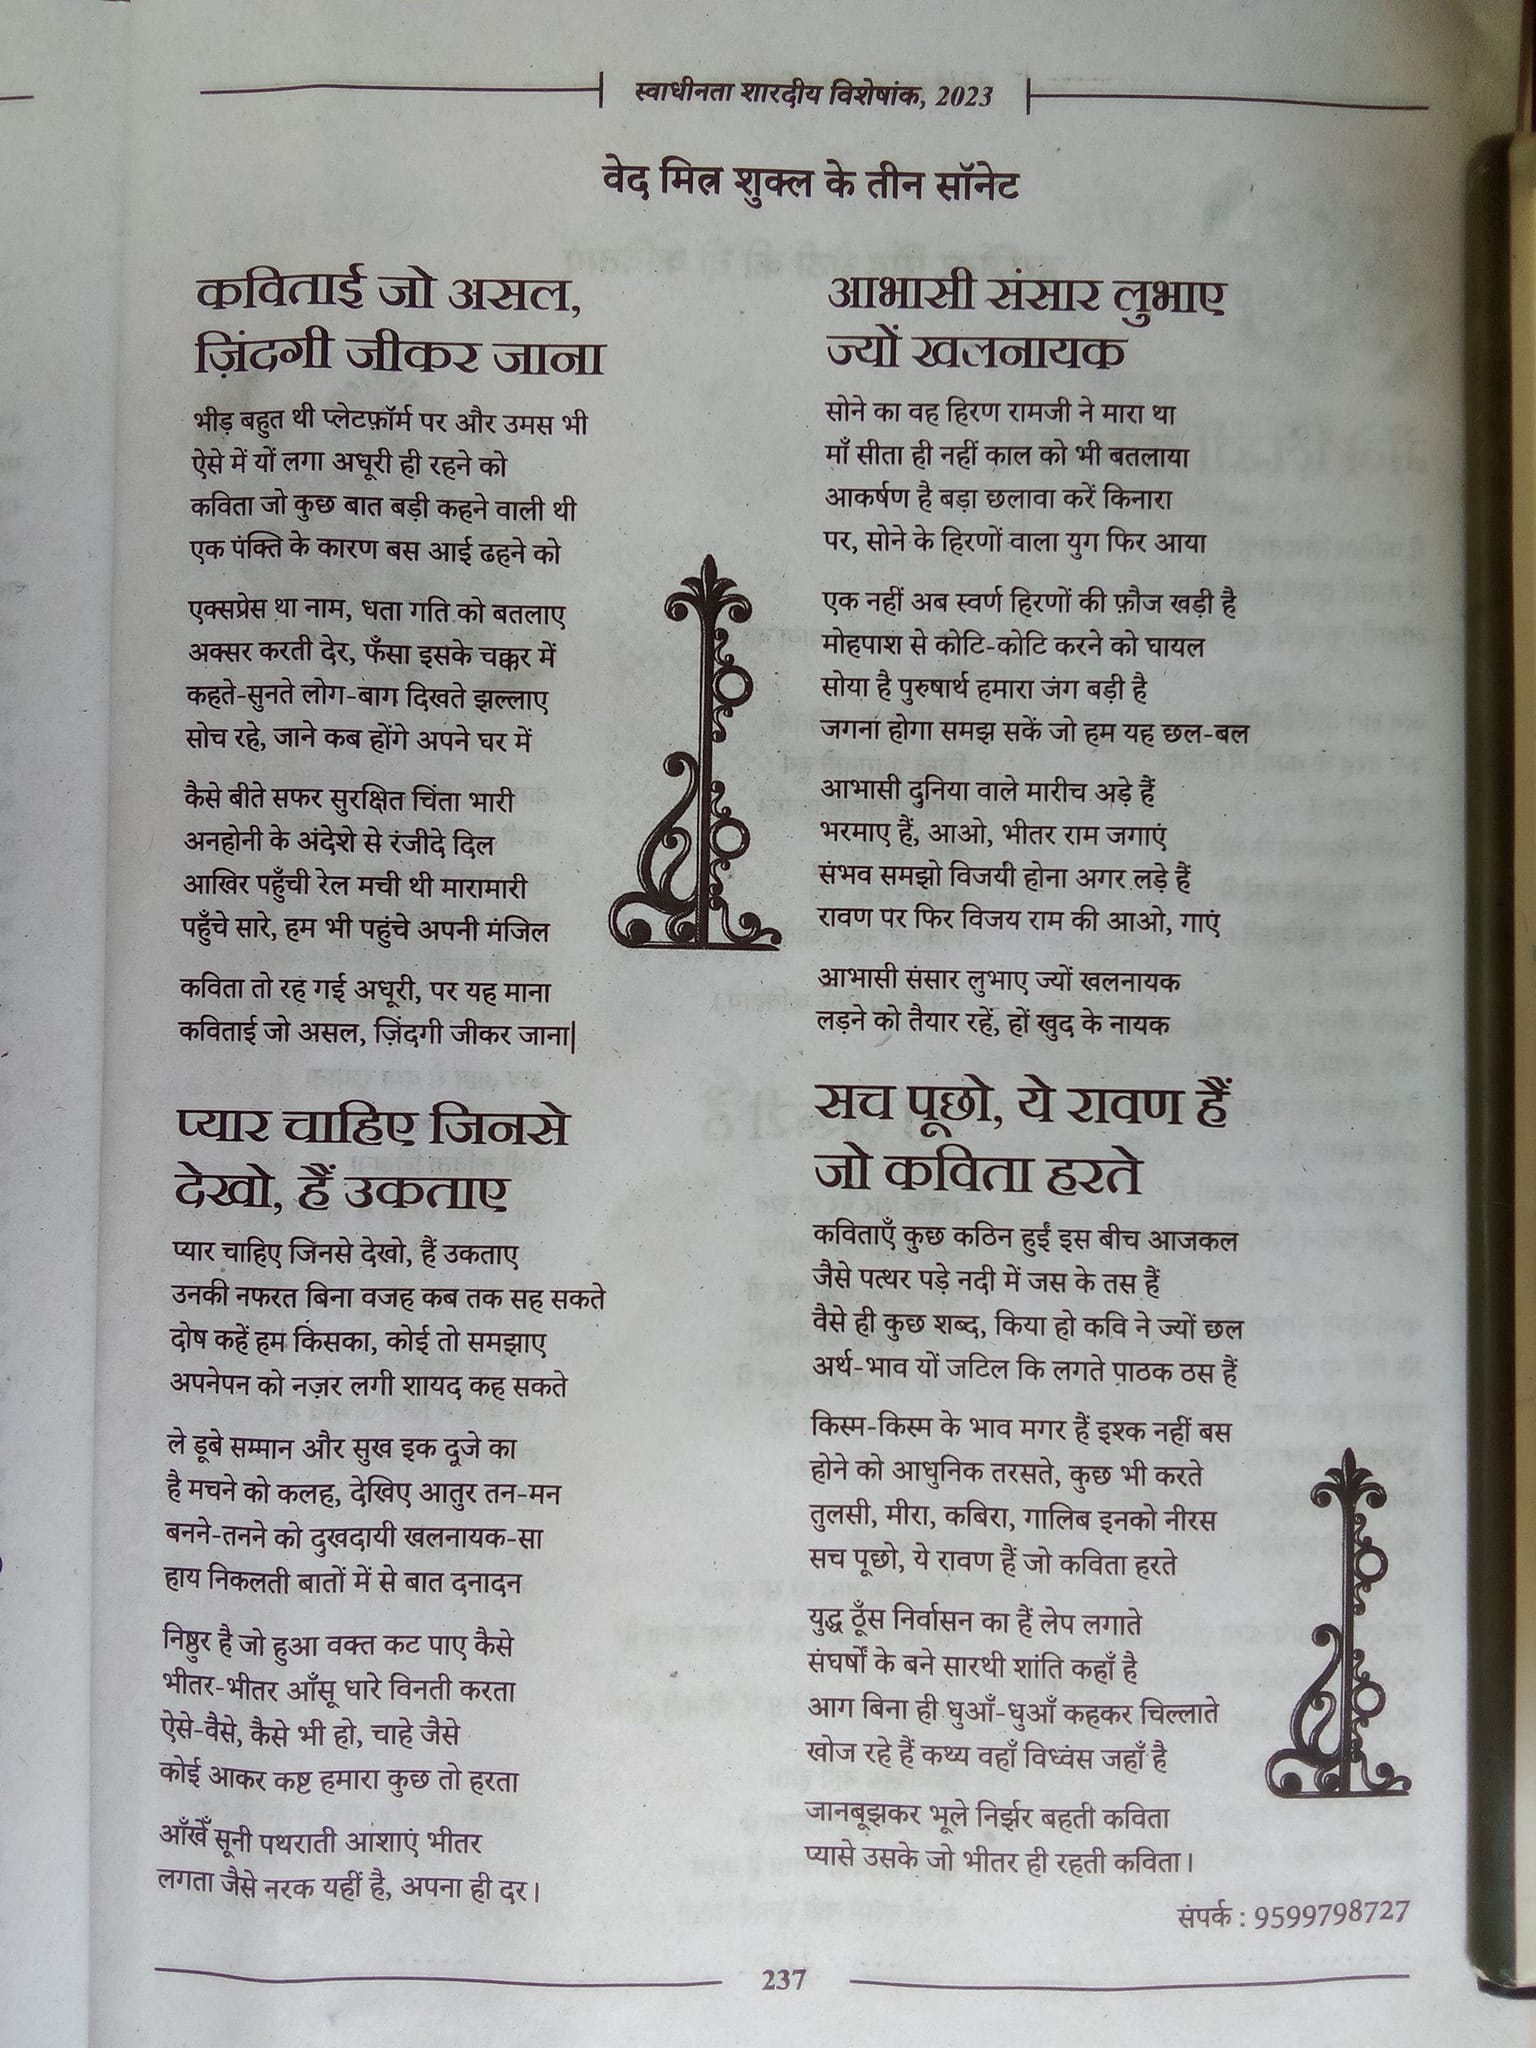 स्वाधीनता शारदीय विशेषांक, 2023
वेद मित्र शुक्ल के तीन सॉनेट
कविताई जो असल,
ज़िंदगी जीकर जाना
भीड़ बहुत थी प्लेटफ़ॉर्म पर और उमस भी
ऐसे में यों लगा अधूरी ही रहने को
कविता जो कुछ बात बड़ी कहने वाली थी
एक पंक्ति के कारण बस आई ढहने को
एक्सप्रेस था नाम, धता गति को बतलाए
अक्सर करती देर, फँसा इसके चक्कर में
कहते-सुनते लोग-बाग दिखते झल्लाए
सोच रहे, जाने कब होंगे अपने घर में
कैसे बीते सफर सुरक्षित चिंता भारी
अनहोनी के अंदेशे से रंजीदे दिल
आखिर पहुँची रेल मची थी मारामारी
पहुँचे सारे, हम भी पहुंचे अपनी मंजिल
कविता तो रह गई अधूरी, पर यह माना
कविताई जो असल, ज़िंदगी जीकर जाना|
प्यार चाहिए जिनसे
देखो, हैं उकताए
प्यार चाहिए जिनसे देखो, हैं उकताए
उनकी नफरत बिना वजह कब तक सह सकते
दोष कहें हम किसका, कोई तो समझाए
अपनेपन को नज़र लगी शायद कह सकते
ले डूबे सम्मान और सुख इक दूजे का
है मचने को कलह, देखिए आतुर तन-मन
बनने-तनने को दुखदायी खलनायक-सा
हाय निकलती बातों में से बात दनादन
निष्ठुर है जो हुआ वक्त कट पाए कैसे
भीतर-भीतर आँसू धारे विनती करता
ऐसे-वैसे, कैसे भी हो, चाहे जैसे
कोई आकर कष्ट हमारा कुछ तो हरता
आँखेँ सूनी पथराती आशाएं भीतर
लगता जैसे नरक यहीं है, अपना ही दर।
आभासी संसार लुभाए
ज्यों खलनायक
सोने का वह हिरण रामजी ने मारा था
माँ सीता ही नहीं काल को भी बतलाया
आकर्षण है बड़ा छलावा करें किनारा
पर, सोने के हिरणों वाला युग फिर आया
एक नहीं अब स्वर्ण हिरणों की फ़ौज खड़ी है
मोहपाश से कोटि-कोटि करने को घायल
सोया है पुरुषार्थ हमारा जंग बड़ी है
जगना होगा समझ सकें जो हम यह छल-बल
आभासी दुनिया वाले मारीच अड़े हैं
भरमाए हैं, आओ, भीतर राम जगाएं
संभव समझो विजयी होना अगर लड़े हैं
रावण पर फिर विजय राम की आओ, गाएं
आभासी संसार लुभाए ज्यों खलनायक
लड़ने को तैयार रहें, हों खुद के नायक
सच पूछो, ये रावण हैं
जो कविता हरते
कविताएँ कुछ कठिन हुईं इस बीच आजकल
जैसे पत्थर पड़े नदी में जस के तस हैं
वैसे ही कुछ शब्द, किया हो कवि ने ज्यों छल
अर्थ-भाव यों जटिल कि लगते पाठक ठस हैं
किस्म-किस्म के भाव मगर हैं इश्क नहीं बस
होने को आधुनिक तरसते, कुछ भी करते
तुलसी, मीरा, कबिरा, गालिब इनको नीरस
सच पूछो, ये रावण हैं जो कविता हरते
युद्ध ठूँस निर्वासन का हैं लेप लगाते
संघर्षों के बने सारथी शांति कहाँ है
आग बिना ही धुआँ-धुआँ कहकर चिल्लाते
खोज रहे हैं कथ्य वहाँ विध्वंस जहाँ है
जानबूझकर भूले निर्झर बहती कविता
प्यासे उसके जो भीतर ही रहती कविता।
संपर्क : 9599798727
237